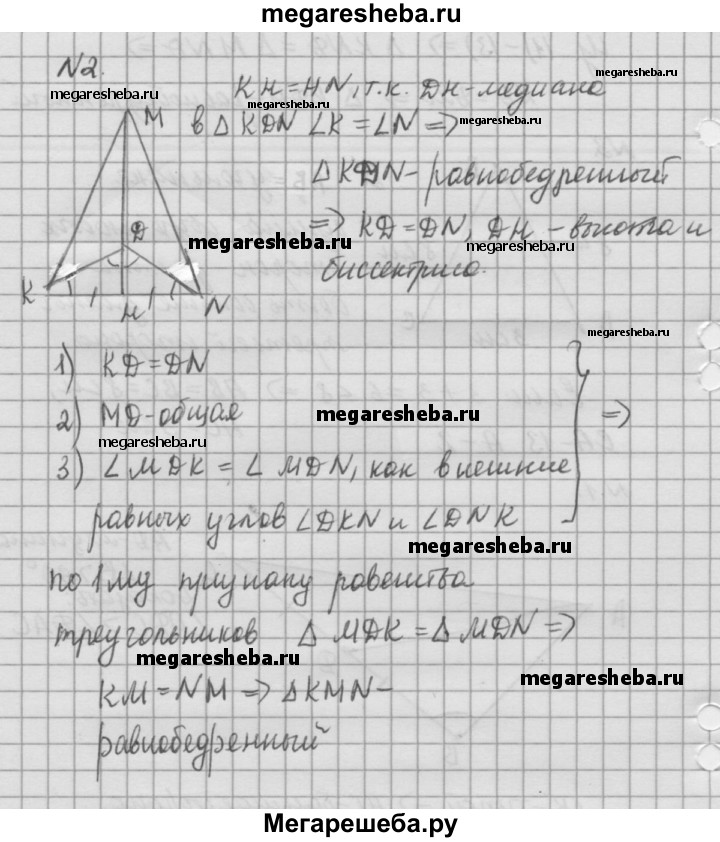 megaresheba.ru
N2.
megaresheba.ru
KH=HN, т.к. DH-медиана
megaresheba.ru
M
в Δ KDN ∠K = ∠N =>
megaresheba.ru
ΔKDN - равнобедренный
D
=> KD=DN, DH - высота и
megaresheba.ru
megaresheba.ru
биссектриса.
K
H
N
megaresheba.ru
1) KD=DN
2) MD-общая
megaresheba.ru
=>
megaresheba.ru
3) ∠MDK = ∠MDN, как внешние
megaresheba.ru
равных углов ∠DKN и ∠DNK
megaresheba.ru
по 1му признаку равенства
треугольников Δ MDK = Δ MDN =>
megaresheba.ru
megaresheba.ru
KM = NM => ΔKMN -
равнобедренный
Мегарешеба.ру